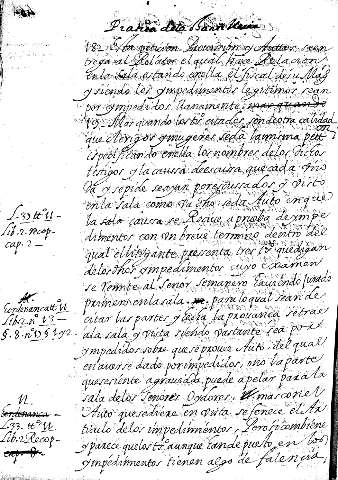 Practica de la Chancilleria
182. Esta peticion Provision y Autos se en
trega al Relator el qual hace Relacion
en la sala estando en ella el fiscal de su Mag
y siendo los ympedimentos lexitimos se an
por ympedidos llanamente
Mas quando los citados son de otra calidad
que clerigos y mugeres se da la misma peti
espezificando en ella los nombres de los dichos
testigos y la causa de escusa que cada uno
da y se pide se ayan por escusados y visto
en la sala como va dho se da Auto en que
la causa se Recive a prueba de ympe
dimentos con un breve termino dentro del
qual el litigante presenta tres to que digan
de los dhos ympedimentos cuyo examen
se remite al Señor Semanero haviendo jurado
primero en la sala para lo qual se an de
citar las partes y hecha la provanza se trae
a la sala y vista siendo vastante se a por
ympedidos sobre que se provee Auto del qual
en averse dado por ympedidos, o no la parte
que se siente agraviada puede apelar para la
sala de los Señores Oydores. y mas con el
Auto que se diere en vista se fenece el Ar
ticulo de los impedimentos. Pero si combiene
y parece que los to aunque tan de puesto en los
ympedimentos tienen algo de falencia,
L. 33 tt° 11
Lib. 2. recop
cap. 2
Ordenanca tt° 11
Lib 2. n° 13
§. 8. n° 15 192
N.
ordenanca
L. 33. tt° 11
Lib. 2 Recop
cap. 8